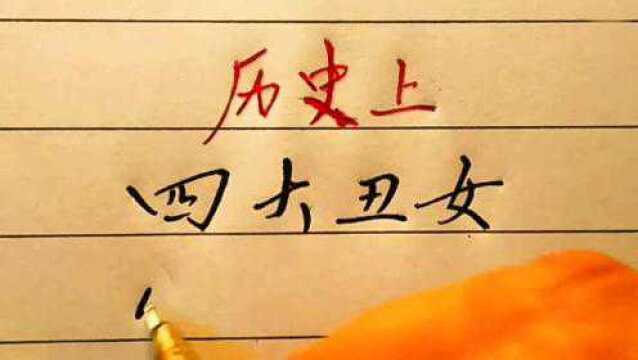 历史上
四大丑女